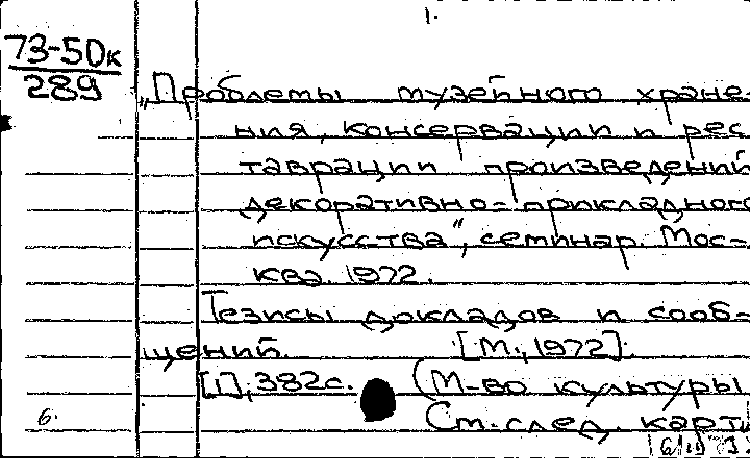 1.
73-50к
289
„Проблемы музейного хране-
ния, консервации и рес
таврации произведений
декоративно-прикладного
искусства", семинар. Мос-
ква. 1972.
Тезисы докладов и сооб-
щений. [М., 1972].
[1], 382с. (М-во культуры
См. след. карт
6.